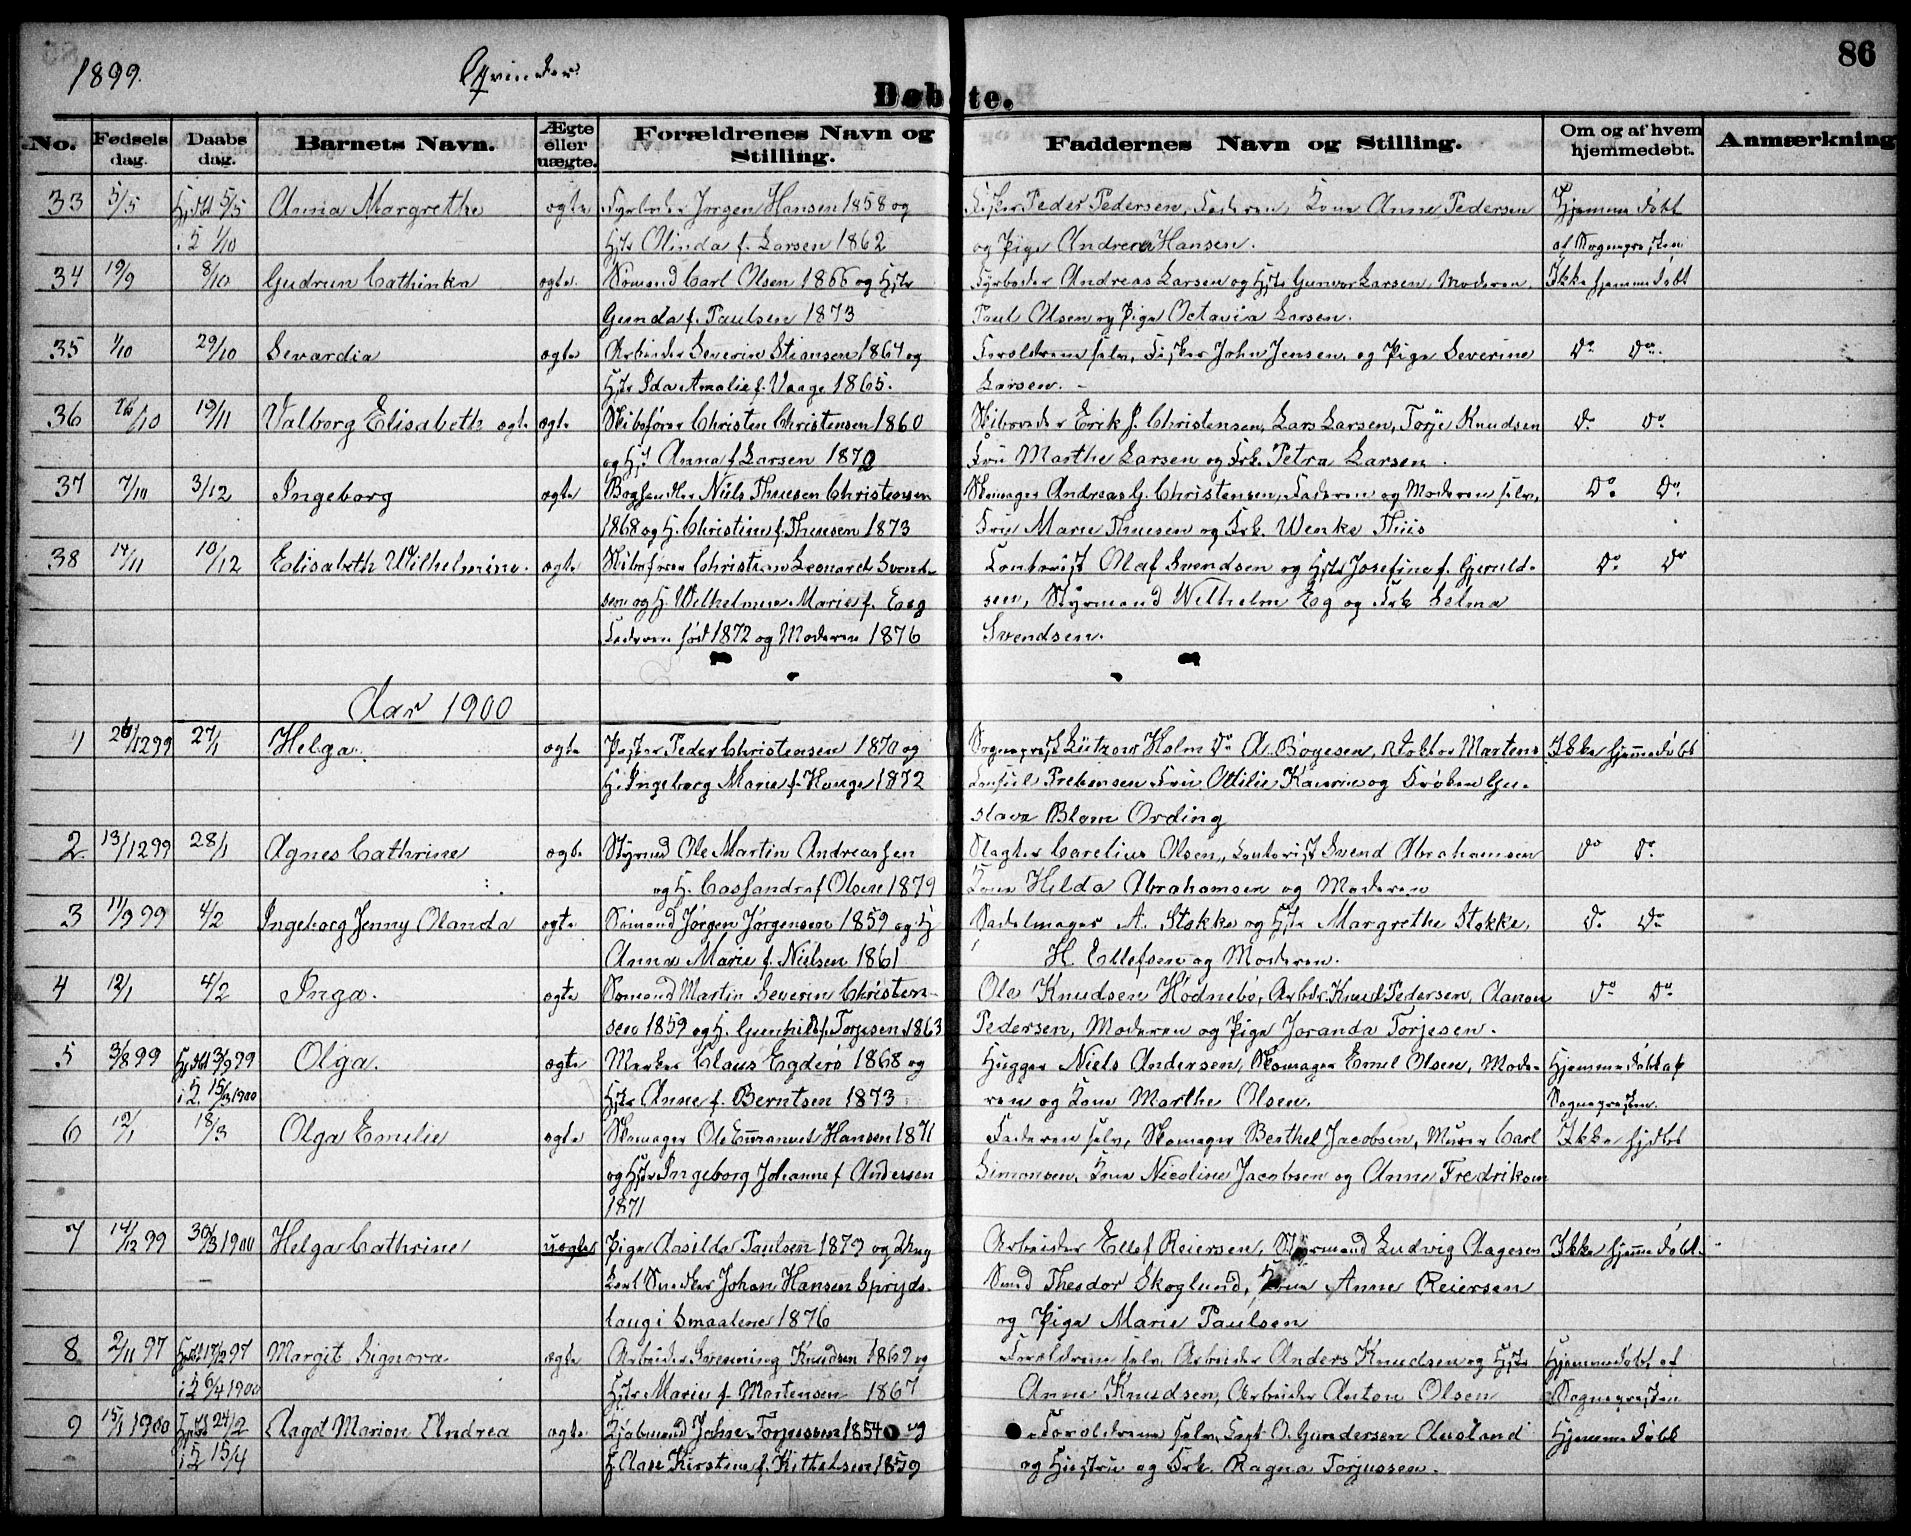 1899. Qvinder. 86
Døbte.
No. Fødsels dag. Daabs dag. Barnets Navn. Ægte eller uægte. Forældrenes Navn og Stilling. Faddernes Navn og Stilling. Om og af hvem hjemmedøbt. Anmærkning
33 5/5 Hj.dbt 5/5 Anna Margrethe ægte Fyrbøder Jørgen Hansen 1858 og Fisker Peder Pedersen, Faderen, Kone Anne Pedersen Hjemmedøbt
i K 1/10 Hstr Olinda f. Larsen 1862 og Pige Andrea Hansen. af Sognepresten
34 19/9 8/10 Gudrun Cathinka ægte Sømand Carl Olsen 1866 og Hstr Fyrbøder Andreas Larsen og Hstr Gunvor Larsen, Moderen, Ikke hjemmedøbt
Gunda f. Paulsen 1873 Paul Olsen og Pige Octavia Larsen.
35 1/10 29/10 Sevardia ægte Arbeider Severin Stiansen 1864 og Forældrene selv, Fisker John Jensen, og Pige Severine Do Do
Hstr Ida Amalie f. Vaage 1865. Larsen. -
36 /10 19/11 Valborg Elisabeth ægte ægte Skibsfører Christen Christensen 1860 Skibsreder Erik J. Christensen, Lars Larsen, Torje Knudsen Do Do
og Hst Anna f Larsen 1870 Fru Marthe Larsen og Frk. Petra Larsen.
37 7/10 3/12 Ingeborg ægte Boghandler Niels Thuesen Christensen Skomager Andreas G. Christensen, Faderen og Moderen selv, Do Do
1868 og H. Christine f. Thuesen 1873 Fru Marie Thuesen og Frk. Wenke Thiis
38 14/11 10/12 Elisabeth Wilhelmine. ægte Skibsfører Christian Leonard Svend- Kontorist Olaf Svendsen og Hstr Josefine f. Gjeruld- Do Do
sen og H. Wilhelmine Marie f. Eeg sen, Styrmand Wilhelm Eg og Frk Selma
Faderen født 1872 og Moderen 1876 Svendsen.
Aar 1900
1 26/12 99 27/1 Helga. ægte Peder Christensen 1870 og Sogneprest Lützow Holm Do A. Børgesen, Doktor Martens Ikke hjemmedøbt
H. Ingeborg Marie f. Hauge 1872 Konsul Prebensen Fru Ottilie og Frøken Gu-
stava Blom Ording
2 13/12 99 28/1 Agnes Cathrine ægte Styrmd Ole Martin Andreassen Slagter Carelius Olsen, Kontorist Svend Abrahamsen Do Do
og H. Cassandra f Olsen 1879 Kone Hilda Abrahamsen og Moderen
3 11/9 99 4/2 Ingeborg Jenny Olanda ægte Sømand Jørgen Jørgensen 1859 og H Sadelmager A. Stokke og Hstr Margrethe Stokke, Do Do
Anna Marie f. Nielsen 1861 H. Ellefsen og Moderen.
4 12/1 4/2 Inga. ægte Sømand Martin Severin Christen- Ole Knudsen Hodnebø, Arbdr. Knud Pedersen, Aanon Do Do
sen 1859 og H. Gunhild f. Torjesen 1863 Pedersen, Moderen og Pige Joranda Torjesen.
5 3/8 99 Hj.dbt 3/9 99 Olga. ægte Claus Egderø 1868 og Hugger Niels Andersen, Skomager Emil Olsen, Mode- Hjemmedøbt af
i K. 15/3 1900 Hstr Anne f. Berntsen 1873 ren og Kone Marthe Olsen. Sognepresten.
6 12/1 18/3 Olga Emilie ægte Skomager Ole Emmanuel Hansen 1871 Faderen selv, Skomager Berthel Jacobsen, Murer Carl Ikke hjdbt
og Hstr Ingeborg Johanne f Andersen Simonsen, Kone Nicoline Jacobsen og Anne Fredriksen
1871
7 14/12 99 30/3 1900 Helga Cathrine uægte Pige Aasilda Paulsen 1873 og Ung Arbeider Ellef Reiersen, Styrmand Ludvig Aagesen Ikke hjemmedøbt.
karl Snedker Johan Hansen Spryds- Smed Theodor Skoglund, Kone Anne Reiersen
laug i Smaalene 1876 og Pige Marie Paulsen
8 2/11 97 Hj.dbt 17/2 97 Margit Signora. ægte Arbeider Svenning Knudsen 1869 og Forældrene selv, Arbeider Anders Knudsen og Hstr Hjemmedøbt af
i K 6/4 1900 Hstr Marie f Martensen 1867 Anne Knudsen, Arbeider Anton Olsen Sognepresten
9 15/1 1900 Hj.dbt 24/2 Aagot Marion Andrea ægte John Torjussen 1854 og Forældrene selv, Kapt O. Gundersen Ausland Hjemmedøbt
i K 15/4 H Aase Kirstine f. Kittelsen 1859 og Hustru og Frk. Ragna Torjussen.